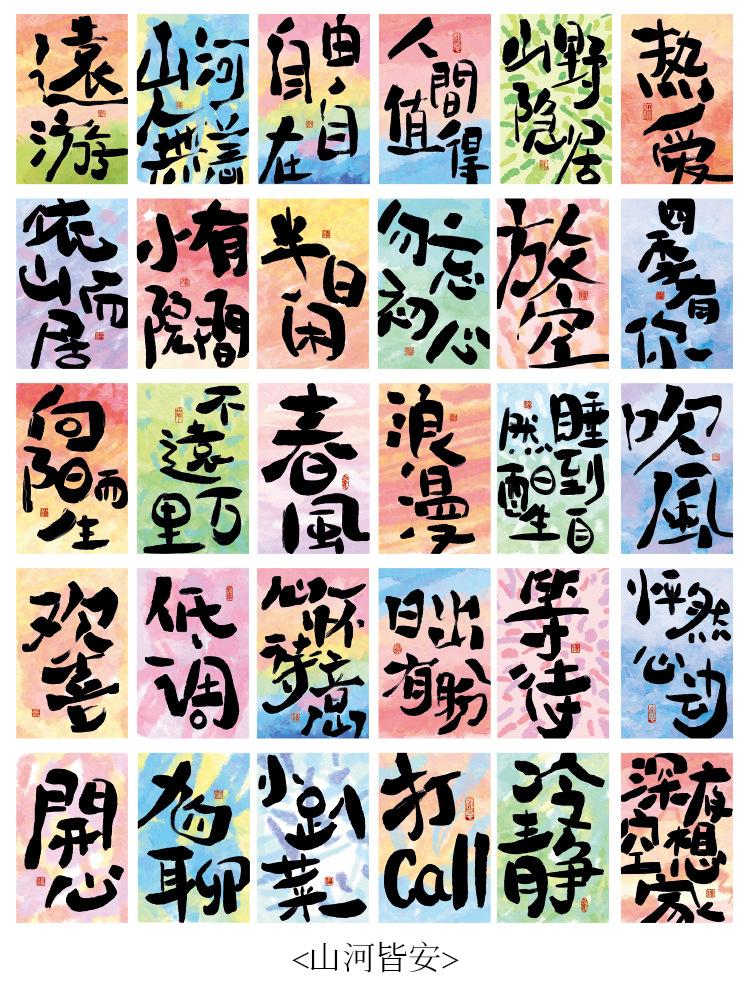 遠游
山河人無恙
自由、自在
人間值得
山野隐居
热爱
依山而居
小院有間
半日闲
勿忘初心
放空
四季有你
向阳而生
不遠万里
春風
浪漫
睡到自然醒
吹風
欢喜
低调
心怀
日出有盼
等待
怦然心动
開心
尬聊
小趴菜
打Call
冷静
深夜空想家
<山河皆安>